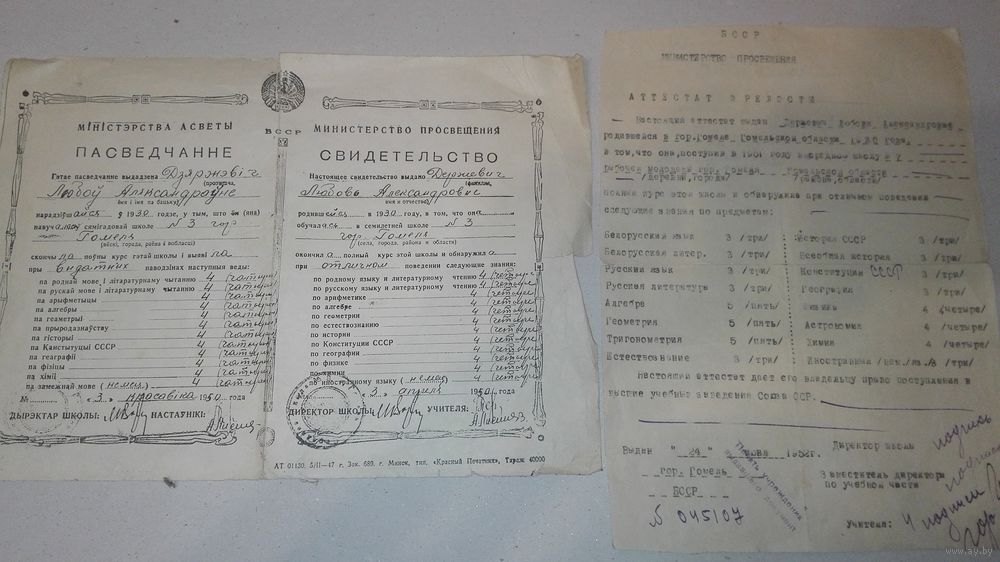 МІНІСТЭРСТВА АСВЕТЫ
ПАСВЕДЧАННЕ
Гэтае пасведчанне выдадзена Дзяржэвіч
(прозвішча,
Любоў Аляксандраўне
імя і імя па бацьку)
нарадзіўшайся ў 1930 годзе, у тым, што ён (яна)
навучалася ў сямігадовай школе № 3 гор
Гомель
(вёскі, города, раёна і вобласці)
скончыла поўны курс гэтай школы і выявіла
пры выдатных паводзінах наступныя веды:
па роднай мове і літаратурнаму чытанню 4 (чатыры)
па рускай мове і літаратурнаму чытанню 4 (чатыры)
па арыфметыцы 4 (чатыры)
па алгебры 4 (чатыры)
па геаметрыі 4 (чатыры)
па прыродазнаўству 4 (чатыры)
па гісторыі 4 (чатыры)
па Канстытуцыі СССР 4 (чатыры)
па геаграфіі 4 (чатыры)
па фізіцы 4 (чатыры)
па хіміі 4 (чатыры)
па замежнай мове (немец.) 4 (чатыры)
№ „3" красавіка 1950 года
ДЫРЭКТАР ШКОЛЫ: НАСТАЎНІКІ:
БССР
МИНИСТЕРСТВО ПРОСВЕЩЕНИЯ
СВИДЕТЕЛЬСТВО
Настоящее свидетельство выдано Держевич
(фамилия,
Любовь Александровне
имя и отчество)
родившейся в 1930 году, в том, что она
обучалась в семилетней школе № 3
гор. Гомель
(села, города, района и области)
окончила полный курс этой школы и обнаружила
при отличном поведении следующие знания:
по родному языку и литературному чтению 4 (четыре)
по русскому языку и литературному чтению 4 (четыре)
по арифметике 4 (четыре)
по алгебре 4 (четыре)
по геометрии 4 (четыре)
по естествознанию 4 (четыре)
по истории 4 (четыре)
по Конституции СССР 4 (четыре)
по географии 4 (четыре)
по физике 4 (четыре)
по химии 4 (четыре)
по иностранному языку (немец) 4 (четыре)
„3" апрель 1950 года
ДИРЕКТОР ШКОЛЫ: УЧИТЕЛЯ:
АТ 01130. 5/II—47 г. Зак. 689. г. Минск, тип. «Красный Печатник», Тираж 40000
БССР
МИНИСТЕРСТВО ПРОСВЕЩЕНИЯ
АТТЕСТАТ ЗРЕЛОСТИ
Настоящий аттестат выдан Любови Александровне
родившейся в гор.Гомеле Гомельской области 1930 года,
в том,что она,поступив в 1951 году в среднюю школу № 7
рабочей молодежи гор Гомеля области
/деревни,города/ /района,области/
полный курс этой школы и обнаружила при отличном поведении
следующие знания по предметам:
Белорусский язык 3 /три/
Белорусская литер. 3 /три/
Русский язык 3 /три/
Русская литература 3 /три/
Алгебра 5 /пять/
Геометрия 5 /пять/
Тригонометрия 5 /пять/
Естествознание 3 /три/
История СССР 3 /три/
Всеобщая история 3 /три/
Конституция СССР 3 /три/
География 3 /три/
Физика 4 /четыре/
Астрономия 4 /четыре/
Химия 4 /четыре/
Иностранный /нем./яз./ 3 /три/
Настоящий аттестат дает его владельцу право поступления в
высшие учебные заведения Союза ССР.
Выдан "24" июня 1952г.
гор. Гомель
БССР
№ 045107
Печать учреждения
выдавшего документ
Директор школы подпись
Заместитель директора
по учебной части подпись
Учителя: 4 подписи
www.ay.by